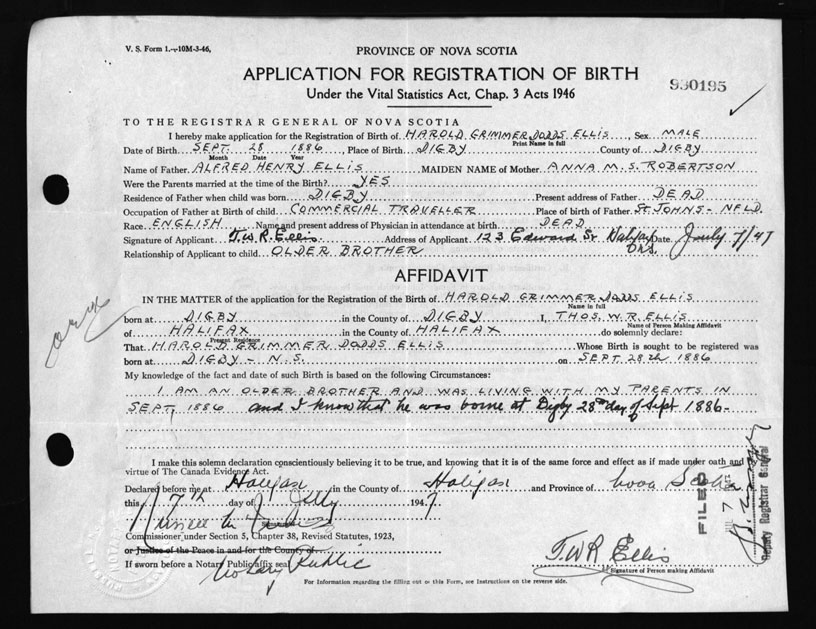 V. S. Form 1.—10M-3-46.
PROVINCE OF NOVA SCOTIA
APPLICATION FOR REGISTRATION OF BIRTH
Under the Vital Statistics Act, Chap. 3 Acts 1946
930195
TO THE REGISTRAR GENERAL OF NOVA SCOTIA
I hereby make application for the Registration of Birth of HAROLD GRIMMER DODDS ELLIS, Sex MALE
Print Name in full
Date of Birth SEPT. 28 1886 Place of Birth DIGBY County of DIGBY
Month Date Year
Name of Father ALFRED HENRY ELLIS MAIDEN NAME of Mother ANNA M. S. ROBERTSON
Were the Parents married at the time of the Birth? YES
Residence of Father when child was born DIGBY Present address of Father DEAD
Occupation of Father at Birth of child COMMERCIAL TRAVELLER Place of birth of Father ST. JOHNS - NFLD.
Race ENGLISH Name and present address of Physician in attendance at birth DEAD
Signature of Applicant T.W.R. Ellis Address of Applicant 123 Edward St Halifax Date July 7/47
Relationship of Applicant to child OLDER BROTHER
AFFIDAVIT
IN THE MATTER of the application for the Registration of the Birth of HAROLD GRIMMER DODDS ELLIS
Name in full
born at DIGBY in the County of DIGBY I, THOS. W. R. ELLIS
Name of Person Making Affidavit
of HALIFAX in the County of HALIFAX do solemnly declare:
Present Residence
That HAROLD GRIMMER DODDS ELLIS Whose Birth is sought to be registered was
born at DIGBY - N.S. on SEPT. 28th 1886
My knowledge of the fact and date of such Birth is based on the following Circumstances:
I AM AN OLDER BROTHER AND WAS LIVING WITH MY PARENTS IN
SEPT, 1886 and I know that he was borne at Digby 28th day of Sept 1886-
I make this solemn declaration conscientiously believing it to be true, and knowing that it is of the same force and effect as if made under oath and by
virtue of The Canada Evidence Act.
Declared before me at Halifax in the County of Halifax and Province of Nova Scotia
this 7th day of July 1947
Commissioner under Section 5, Chapter 38, Revised Statutes, 1923,
or Justice of the Peace in and for the County of
If sworn before a Notary Public affix seal Notary Public
T.W.R Ellis
Signature of Person making Affidavit
For Information regarding the filling out of this Form, see Instructions on the reverse side.
FILED
Deputy Registrar General